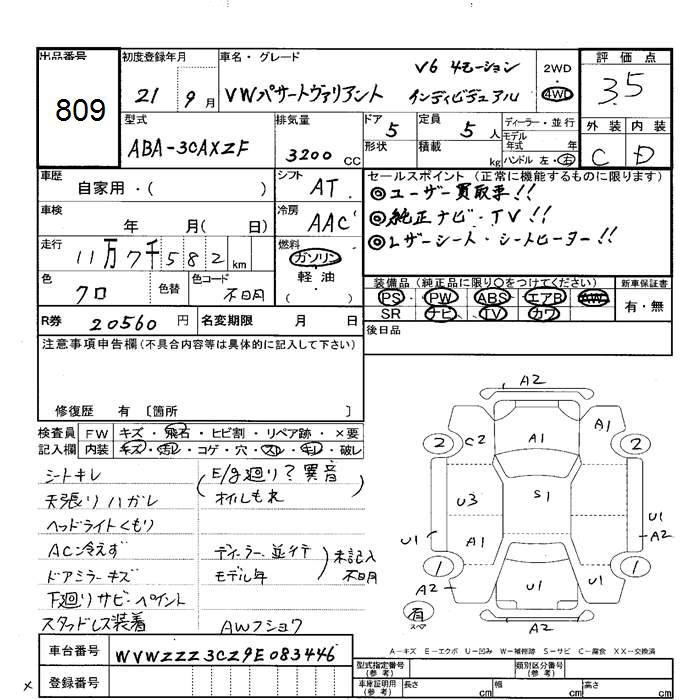 出品番号 初度登録年月 車名・グレード 評価点
809
21 9月 VWパサートヴァリアント V6 4モーション インディビデュアル 2WD 4WD 3.5
型式 排気量 ドア 定員 ディーラー・並行 外装 内装
ABA-3CAXZF 3200 CC 5 5人 モデル年式 年
形状 積載 kg ハンドル 左・右 C D
車歴 シフト セールスポイント (正常に機能するものに限ります)
自家用・( ) AT ◎ユーザー買取車!!
車検 冷房 ◎純正ナビ・TV!!
年 月( 日) AAC ◎レザーシート・シートヒーター!!
走行 燃料
11万7千582km ガソリン
軽油
( )
色 色替 色コード 装備品 (純正品に限り○をつけてください) 新車保証書
クロ 不明 PS・PW・ABS・エアB・AW 有・無
SR ナビ・TV・カワ
R券 20560円 名変期限 月 日 後日品
注意事項申告欄(不具合内容等は具体的に記入して下さい)
修復歴 有 〔箇所 〕
検査員 FW キズ・飛石・ヒビ割・リペア跡・×要
記入欄 内装 キズ・汚レ・コゲ・穴・スレ・キレ・破レ
シートキレ (E/g廻り?異音
天張りハガレ オイルもれ)
ヘッドライトくもり
AC冷えず ディーラー、並行 未記入
ドアミラーキズ モデル年 不明
下廻りサビ・ペイント
スタッドレス装着 AWフショク
A2
2 C2 A1 A1 2
U3 S1
U1 A1 U1 A2
1 U1 U1 1
A2
有 スペア
A2
A-キズ E-エクボ U-凹み W-補修跡 S-サビ C-腐食 XX-交換済
車台番号 WVWZZZ3CZ9E083446
型式指定番号 (参考) 類別区分番号 (参考)
× 登録番号
車庫証明用 (参考) 長さ cm 幅 cm 高さ cm